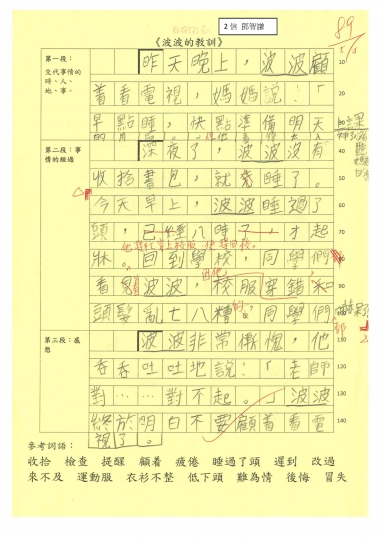 2信 鄧智謙
89
《波波的教訓》
第一段：
交代事情的
時、人、
地、事。
昨天晚上，波波顧
10
着看電視，媽媽說：「
早點睡，快點準備明天
30
第二段：事
情的經過
深夜了，波波沒有
40
收拾書包，就竟睡了。
50
今天早上，波波睡過了
60
頭，已經八時了，才起
70
他趕忙穿上校服，便趕回校。
牀。回到學校，同學們
看見波波，校服穿錯和
90
頭髮亂七八糟的，同學們
第三段：感
想
波波非常慚愧，他
110
吞吞吐吐地說：「老師
120
對……對不起。」波波
130
終於明白不要顧着看電
140
視了。
參考詞語：
收拾 檢查 提醒 顧着 疲倦 睡過了頭 遲到 改過
來不及 運動服 衣衫不整 低下頭 難為情 後悔 冒失